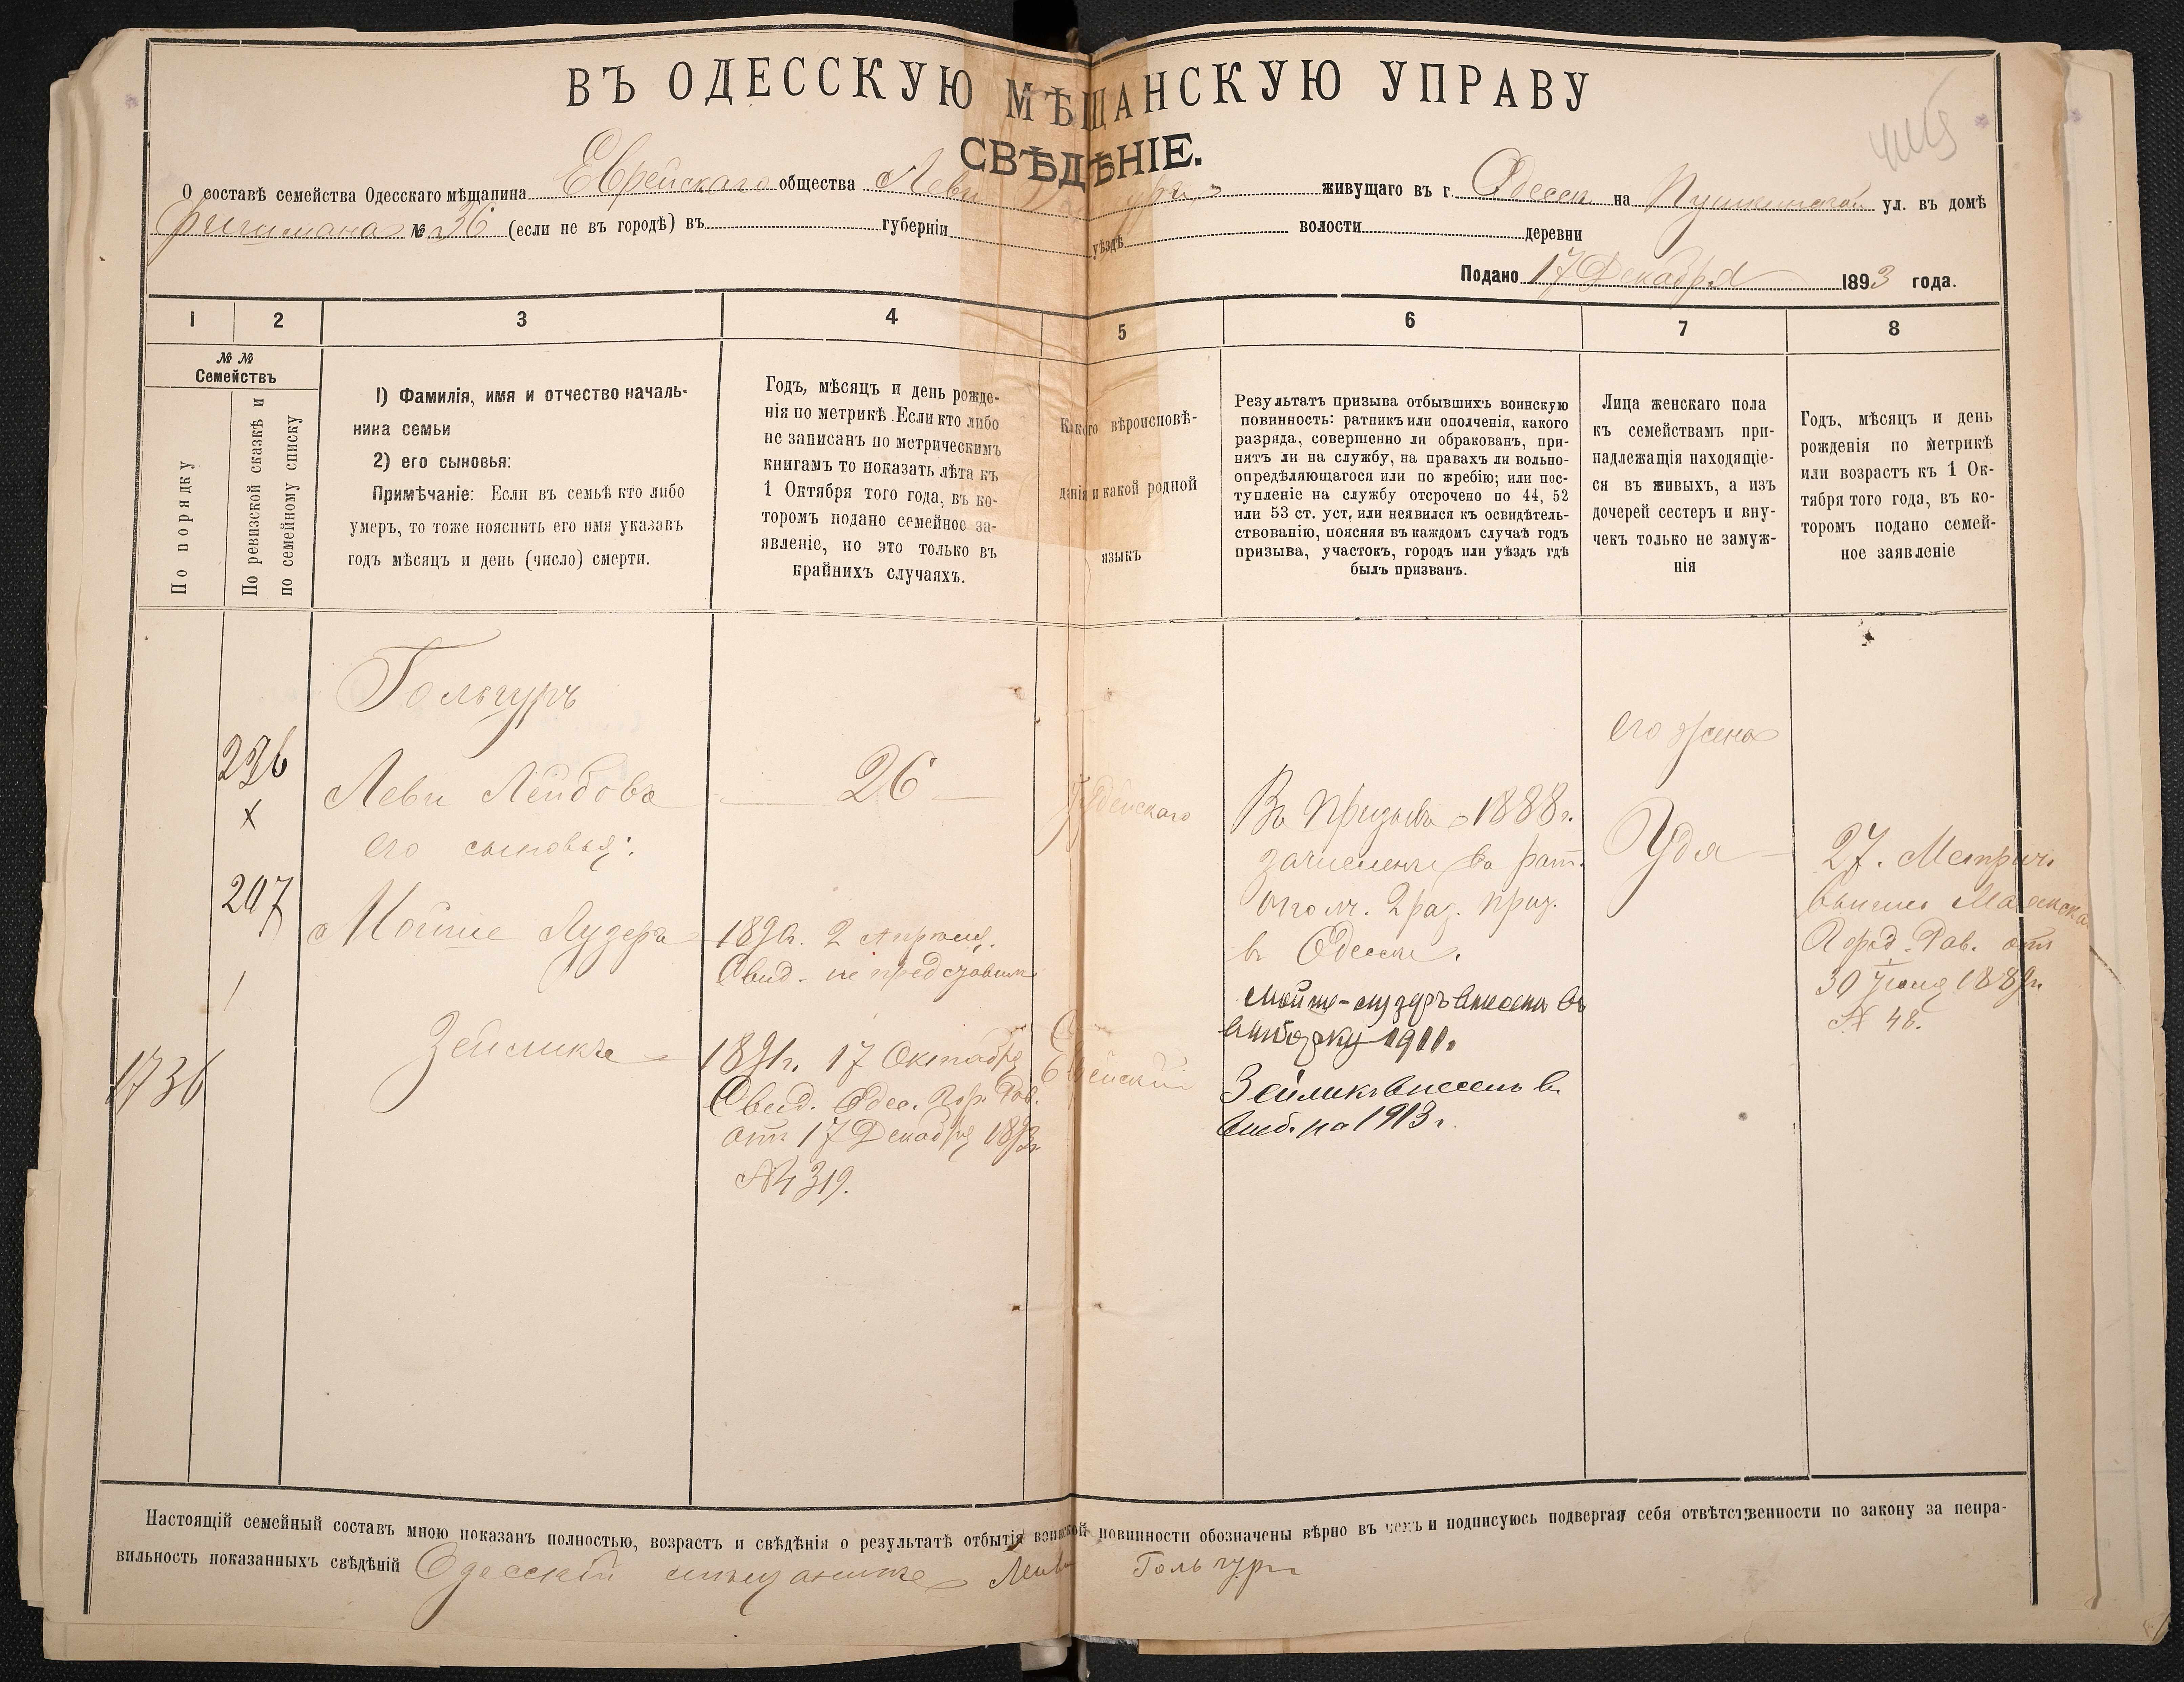 ВЪ ОДЕССКУЮ МѢЩАНСКУЮ УПРАВУ
СВѢДѢНІЕ.
О составѣ семейства Одесскаго мѣщанина Еврейскаго общества Леви живущаго въ г. Одессѣ на Пушкинской ул. въ домѣ
№ 36 (если не въ городѣ) въ губерніи уѣздѣ волости деревни
Подано 17 Декабря 1893 года.
1 2 3 4 5 6 7 8
№ № Семействъ
По порядку
По ревизской сказкѣ и
по семейному списку
1) Фамилія, имя и отчество началь-
ника семьи
2) его сыновья:
Примѣчаніе: Если въ семьѣ кто либо
умеръ, то тоже пояснить его имя указавъ
годъ мѣсяцъ и день (число) смерти.
Годъ, мѣсяцъ и день рожде-
нія по метрикѣ. Если кто либо
не записанъ по метрическимъ
книгамъ то показать лѣта къ
1 Октября того года, въ ко-
торомъ подано семейное за-
явленіе, но это только въ
крайнихъ случаяхъ.
Какого вѣроисповѣ-
данія и какой родной
языкъ
Результатъ призыва отбывшихъ воинскую
повинность: ратникъ или ополченія, какого
разряда, совершенно ли обракованъ, при-
нятъ ли на службу, на правахъ ли вольно-
опредѣляющагося или по жребію; или пос-
тупленіе на службу отсрочено по 44, 52
или 53 ст. уст. или неявился къ освидѣтель-
ствованію, поясняя въ каждомъ случаѣ годъ
призыва, участокъ, городъ или уѣздъ гдѣ
былъ призванъ.
Лица женскаго пола
къ семействамъ при-
надлежащія находящіе-
ся въ живыхъ, а изъ
дочерей сестеръ и вну-
чекъ только не замуж-
нія
Годъ, мѣсяцъ и день
рожденія по метрикѣ
или возрастъ къ 1 Ок-
тября того года, въ ко-
торомъ подано семей-
ное заявленіе
Гольгуръ
Леви Лейбовъ
его сыновья:
Мойше Лузеръ
Зейликъ
1736
26
1890г. 2 Апрѣля.
Свид. не представилъ
1891г. 17 Октября
Свид. Одес. Гор. Рав.
отъ 17 Декабря 1893г.
№ 4319.
Іудейскаго
Еврейскій
Въ призывъ 1888г.
зачисленъ въ рат.
ополч. 2 раз. приз.
въ Одессѣ.
Мойше-Лузеръ внесенъ въ
выборку 1911г.
Зейликъ внесенъ въ
выб. на 1913г.
его жена
Удя
27. Метрич.
Город. Рав. отъ
30 Іюня 1889г.
№ 48.
Настоящій семейный составъ мною показанъ полностью, возрастъ и свѣдѣнія о результатѣ отбытія воинской повинности обозначены вѣрно въ чемъ и подписуюсь подвергая себя отвѣтственности по закону за непра-
вильность показанныхъ свѣдѣній Одесскій мѣщанинъ Леви Гольгуръ